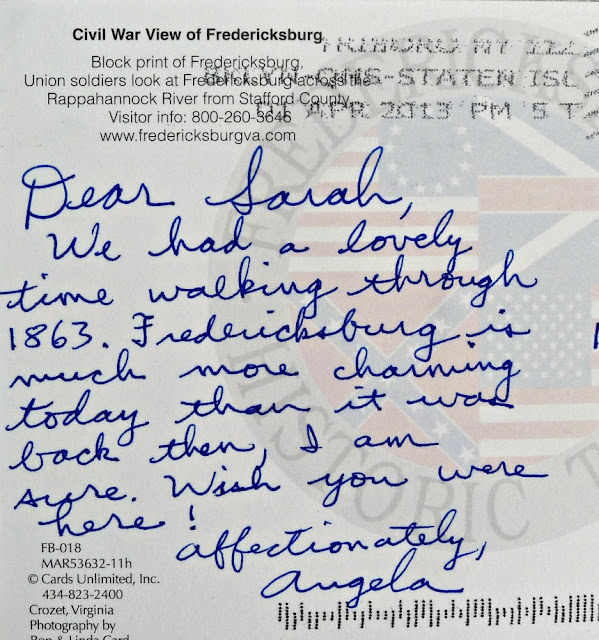 Civil War View of Fredericksburg
Block print of Fredericksburg.
Union soldiers look at Fredericksburg across the
Rappahannock River from Stafford County.
Visitor info: 800-260-3646
www.fredericksburgva.com
TRIBORO NY 117
BKLYN-QNS-STATEN ISL
APR 2013 PM 5 T
Dear Sarah,
We had a lovely
time walking through
1863. Fredericksburg is
much more charming
today than it was
back then, I am
sure. Wish you were
here!
affectionately,
Angela
FREDERICKSBURG
HISTORIC
FB-018
MAR53632-11h
© Cards Unlimited, Inc.
434-823-2400
Crozet, Virginia
Photography by
Ron & Linda Card